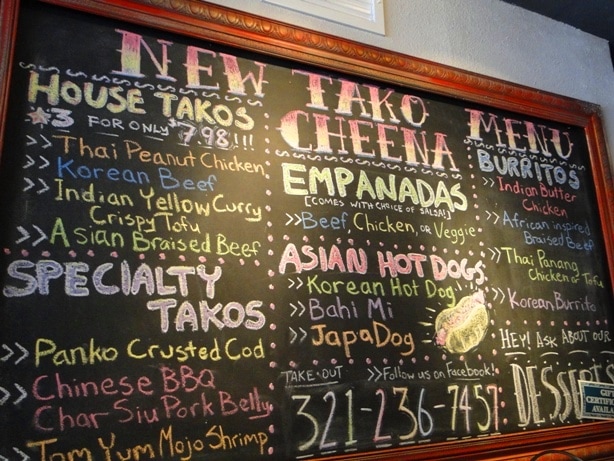 NEW TAKO CHEENA MENU
HOUSE TAKOS
*3 FOR ONLY $7.98!!!
>> Thai Peanut Chicken
>> Korean Beef
>> Indian Yellow Curry
Crispy Tofu
>> Asian Braised Beef
SPECIALTY
TAKOS
>> Panko Crusted Cod
>> Chinese BBQ
Char Siu Pork Belly
>> Tom Yum Mojo Shrimp
EMPANADAS
[COMES WITH CHOICE OF SALSA!]
>> Beef, Chicken, OR Veggie
ASIAN HOT DOGS
>> Korean Hot Dog
>> Bahi Mi
>> JapaDog
TAKE-OUT >> Follow us on Facebook!
321-236-7457
BURRITOS
>> Indian Butter
Chicken
>> African inspired
Braised Beef
>> Thai Panang
Chicken or Tofu
>> Korean Burrito
HEY! ASK ABOUT OUR
DESSERTS